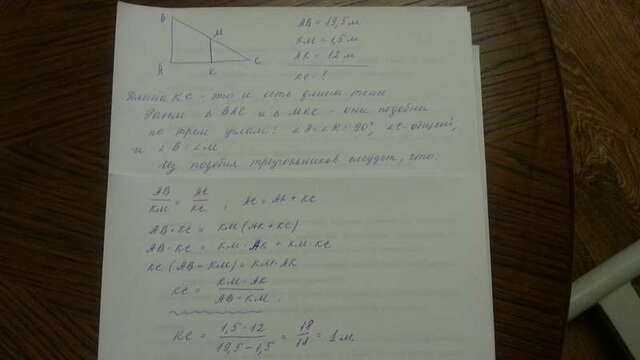 B
M
A
K
C
AB = 19,5 м
KM = 1,5 м
AK = 12 м
KC - ?
Длина KC - это и есть длина тени
△ BAC и △ MKC - они подобны
по трем углам: ∠A = ∠K = 90°, ∠C - общий,
и ∠B = ∠M
Из подобия треугольников следует, что:
AB/KM = AC/KC ; AC = AK + KC
AB·KC = KM (AK + KC)
AB·KC = KM·AK + KM·KC
KC (AB - KM) = KM·AK
KC = KM·AK / AB - KM ;
KC = 1,5·12 / 19,5 - 1,5 = 18/18 = 1 м.